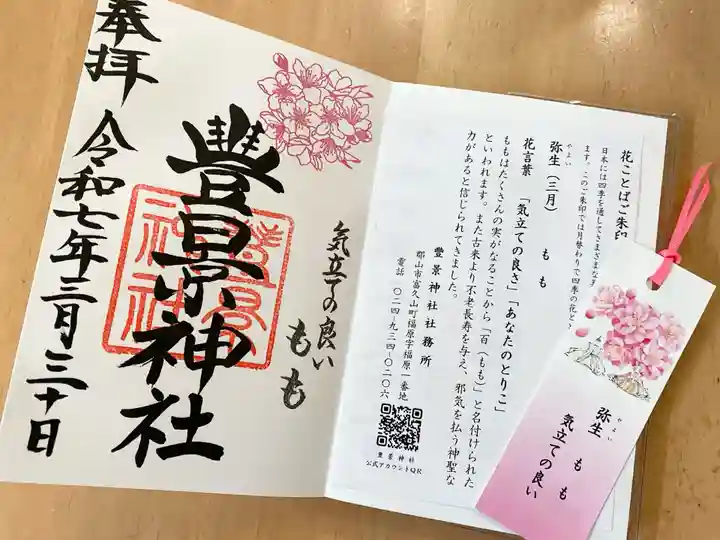 奉拝
豊景神社
気立ての良い
もも
令和七年三月三十日
花ことばご朱印
日本には四季を通してさまざまな
ます。このご朱印では月替わりで四季の花と
やよい
弥生(三月) もも
花言葉 「気立ての良さ」「あなたのとりこ」
ももはたくさんの実がなることから「百(もも)」と名付けられた
といわれます。また古来より不老長寿を与え、邪気を払う神聖な
力があると信じられてきました。
豊景神社社務所
郡山市富久山町福原字福原一番地
電話 〇二四-九三四-〇二〇六
豊景神社
公式アカウントQR
やよい
弥生 もも
気立ての良い